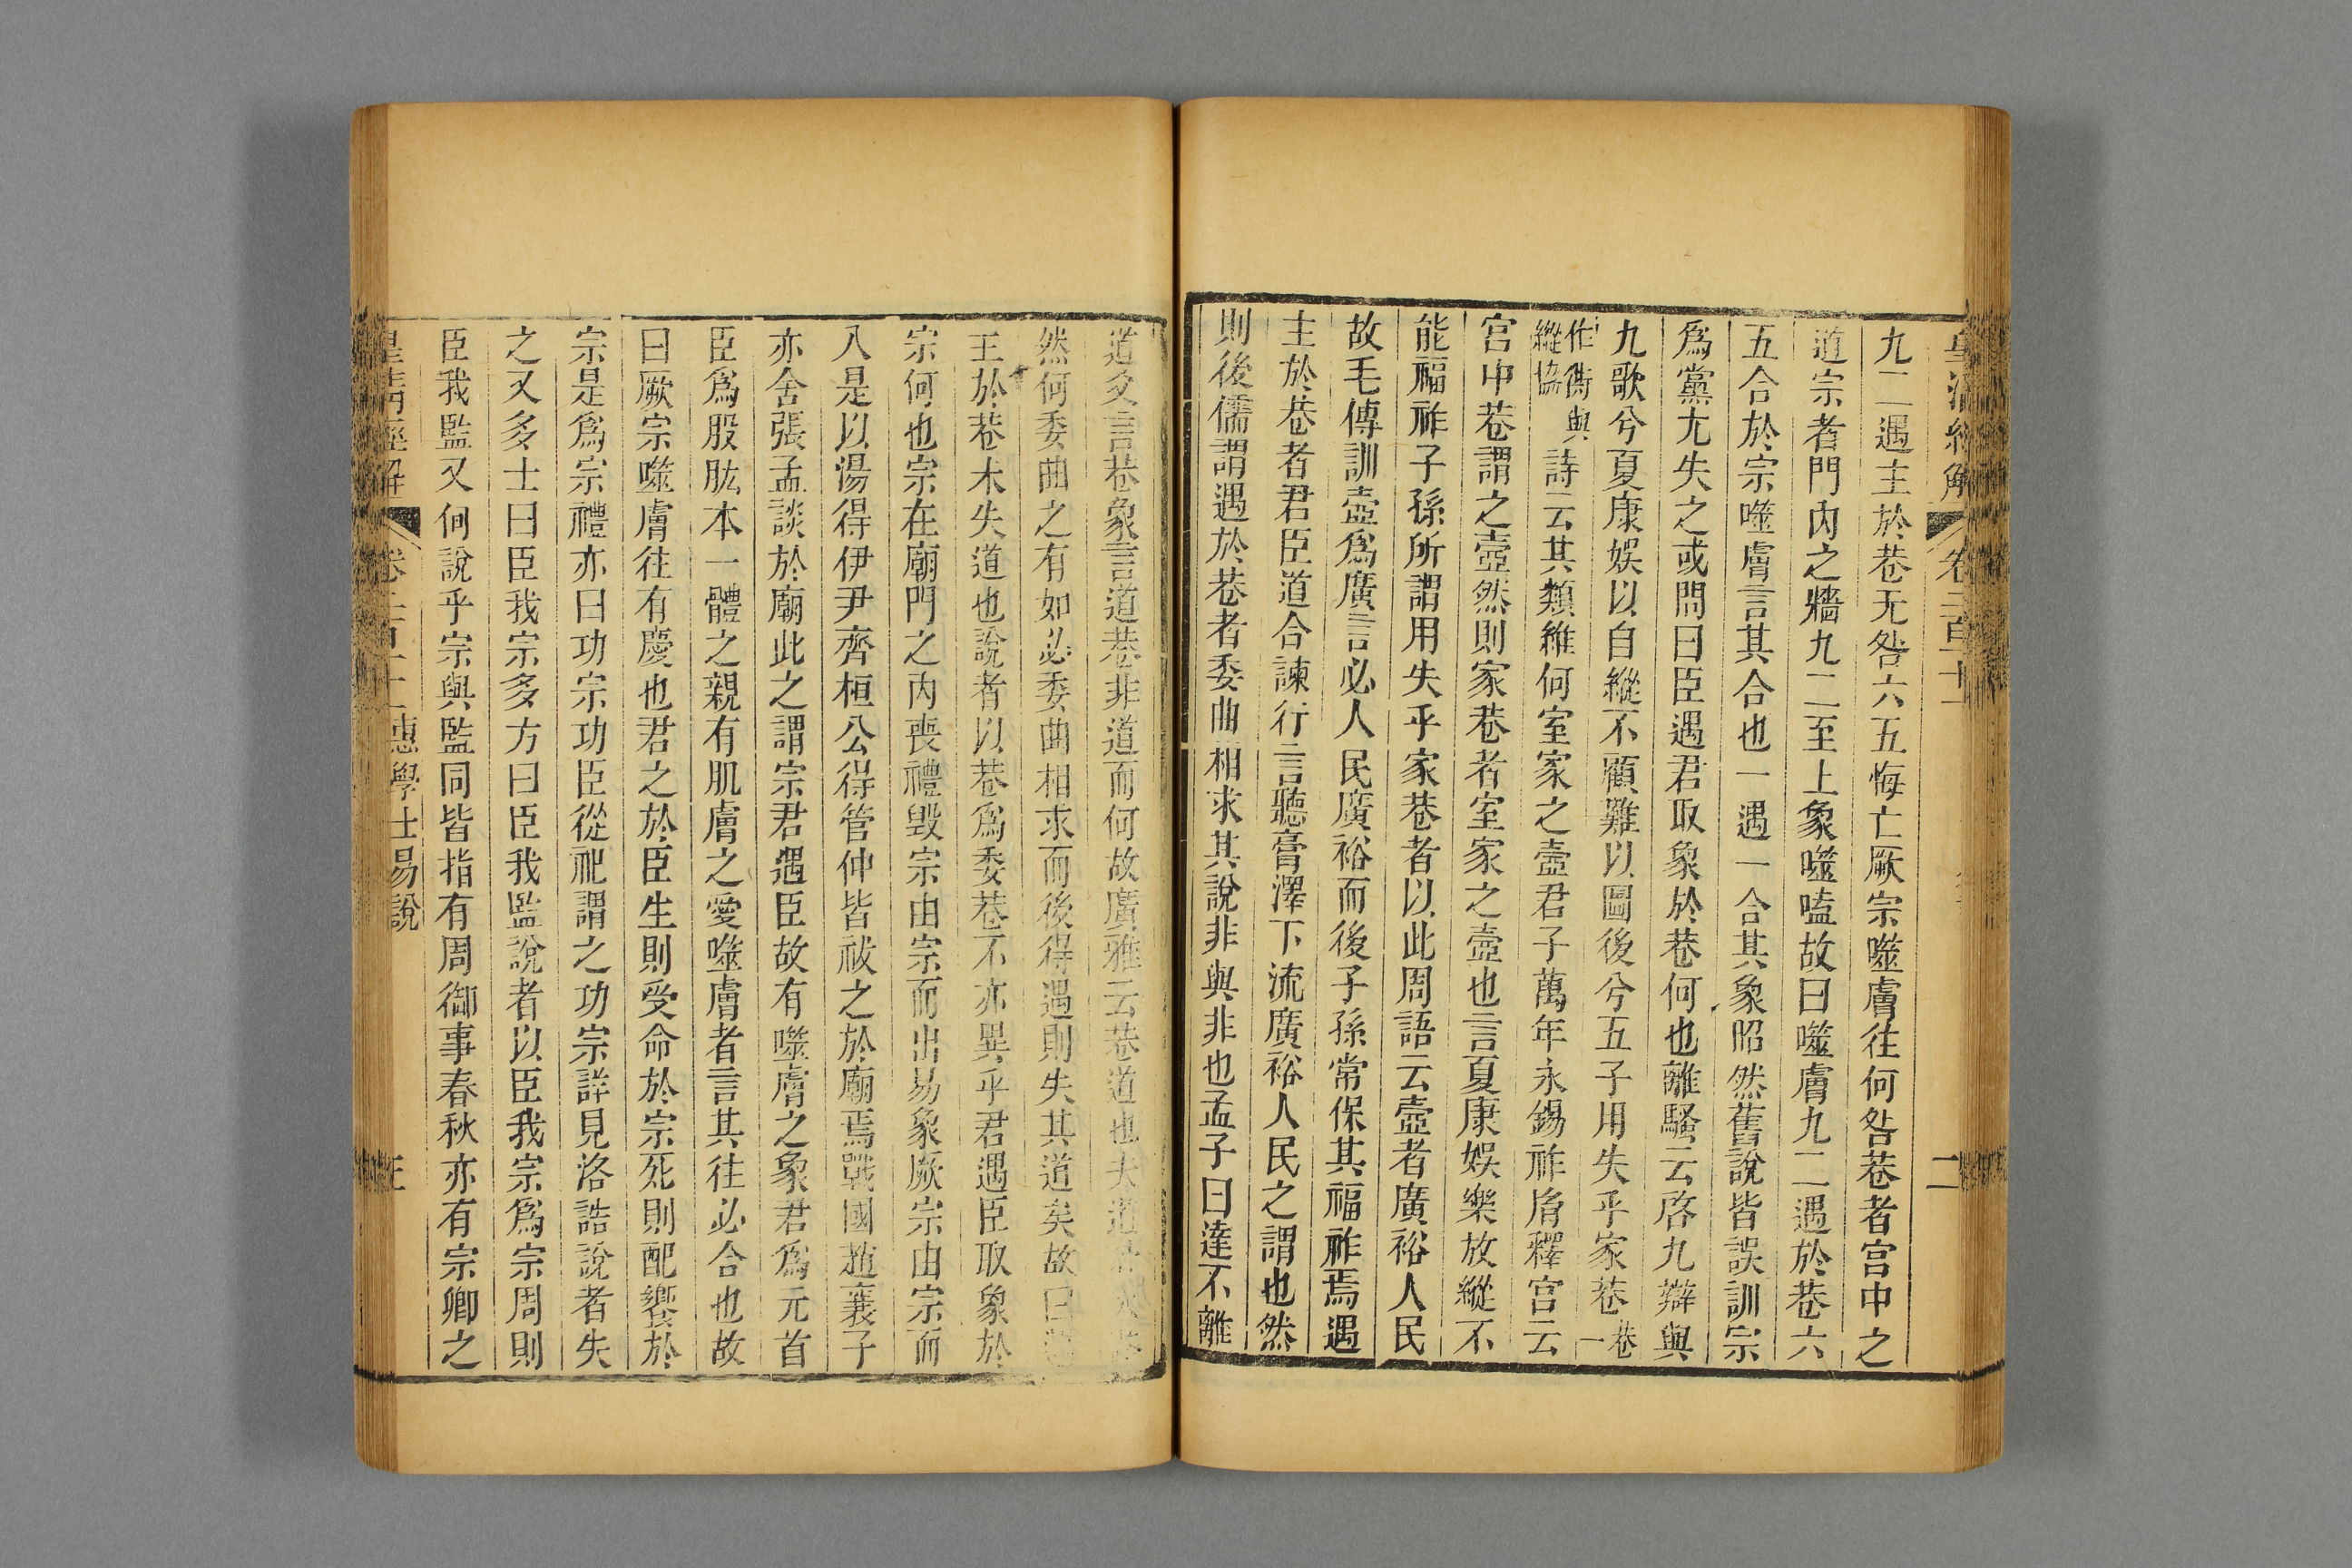 皇清經解 卷二百十一 二
九二遇主於巷无咎六五悔亡厥宗噬膚往何咎巷者宮中之
道宗者門內之牆九二至上象噬嗑故曰噬膚九二遇於巷六
五合於宗噬膚言其合也一遇一合其象昭然舊說皆誤訓宗
爲黨尢失之或問曰臣遇君取象於巷何也離騷云啓九辯與
九歌兮夏康娛以自縱不顧難以圖後兮五子用失乎家巷巷一
作衖與縱協 與詩云其類維何室家之壼君子萬年永錫祚胤釋宮云
宮中巷謂之壼然則家巷者室家之壼也言夏康娛樂放縱不
能福祚子孫所謂用失乎家巷者以此周語云壼者廣裕人民
故毛傳訓壼爲廣言必人民廣裕而後子孫常保其福祚焉遇
主於巷者君臣道合諫行言聽膏澤下流廣裕人民之謂也然
則後儒謂遇於巷者委曲相求其說非與非也孟子曰達不離
道爻言巷象言道巷非道而何故廣雅云巷道也夫道
然何委曲之有如必委曲相求而後得遇則失其道矣故曰
王於巷未失道也說者以巷爲委巷不亦異乎君遇臣取象於
宗何也宗在廟門之內喪禮毀宗由宗而出易象厥宗由宗而
入是以湯得伊尹齊桓公得管仲皆祓之於廟焉戰國趙襄子
亦舍張孟談於廟此之謂宗君遇臣故有噬膚之象君爲元首
臣爲股肱本一體之親有肌膚之愛噬膚者言其往必合也故
曰厥宗噬膚往有慶也君之於臣生則受命於宗死則配饗於
宗是爲宗禮亦曰功宗功臣從祀謂之功宗詳見洛誥說者失
之又多士曰臣我宗多方曰臣我監說者以臣我宗爲宗周則
臣我監又何說乎宗與監同皆指有周御事春秋亦有宗卿之
皇清經解 卷二百十一 惠學士易說